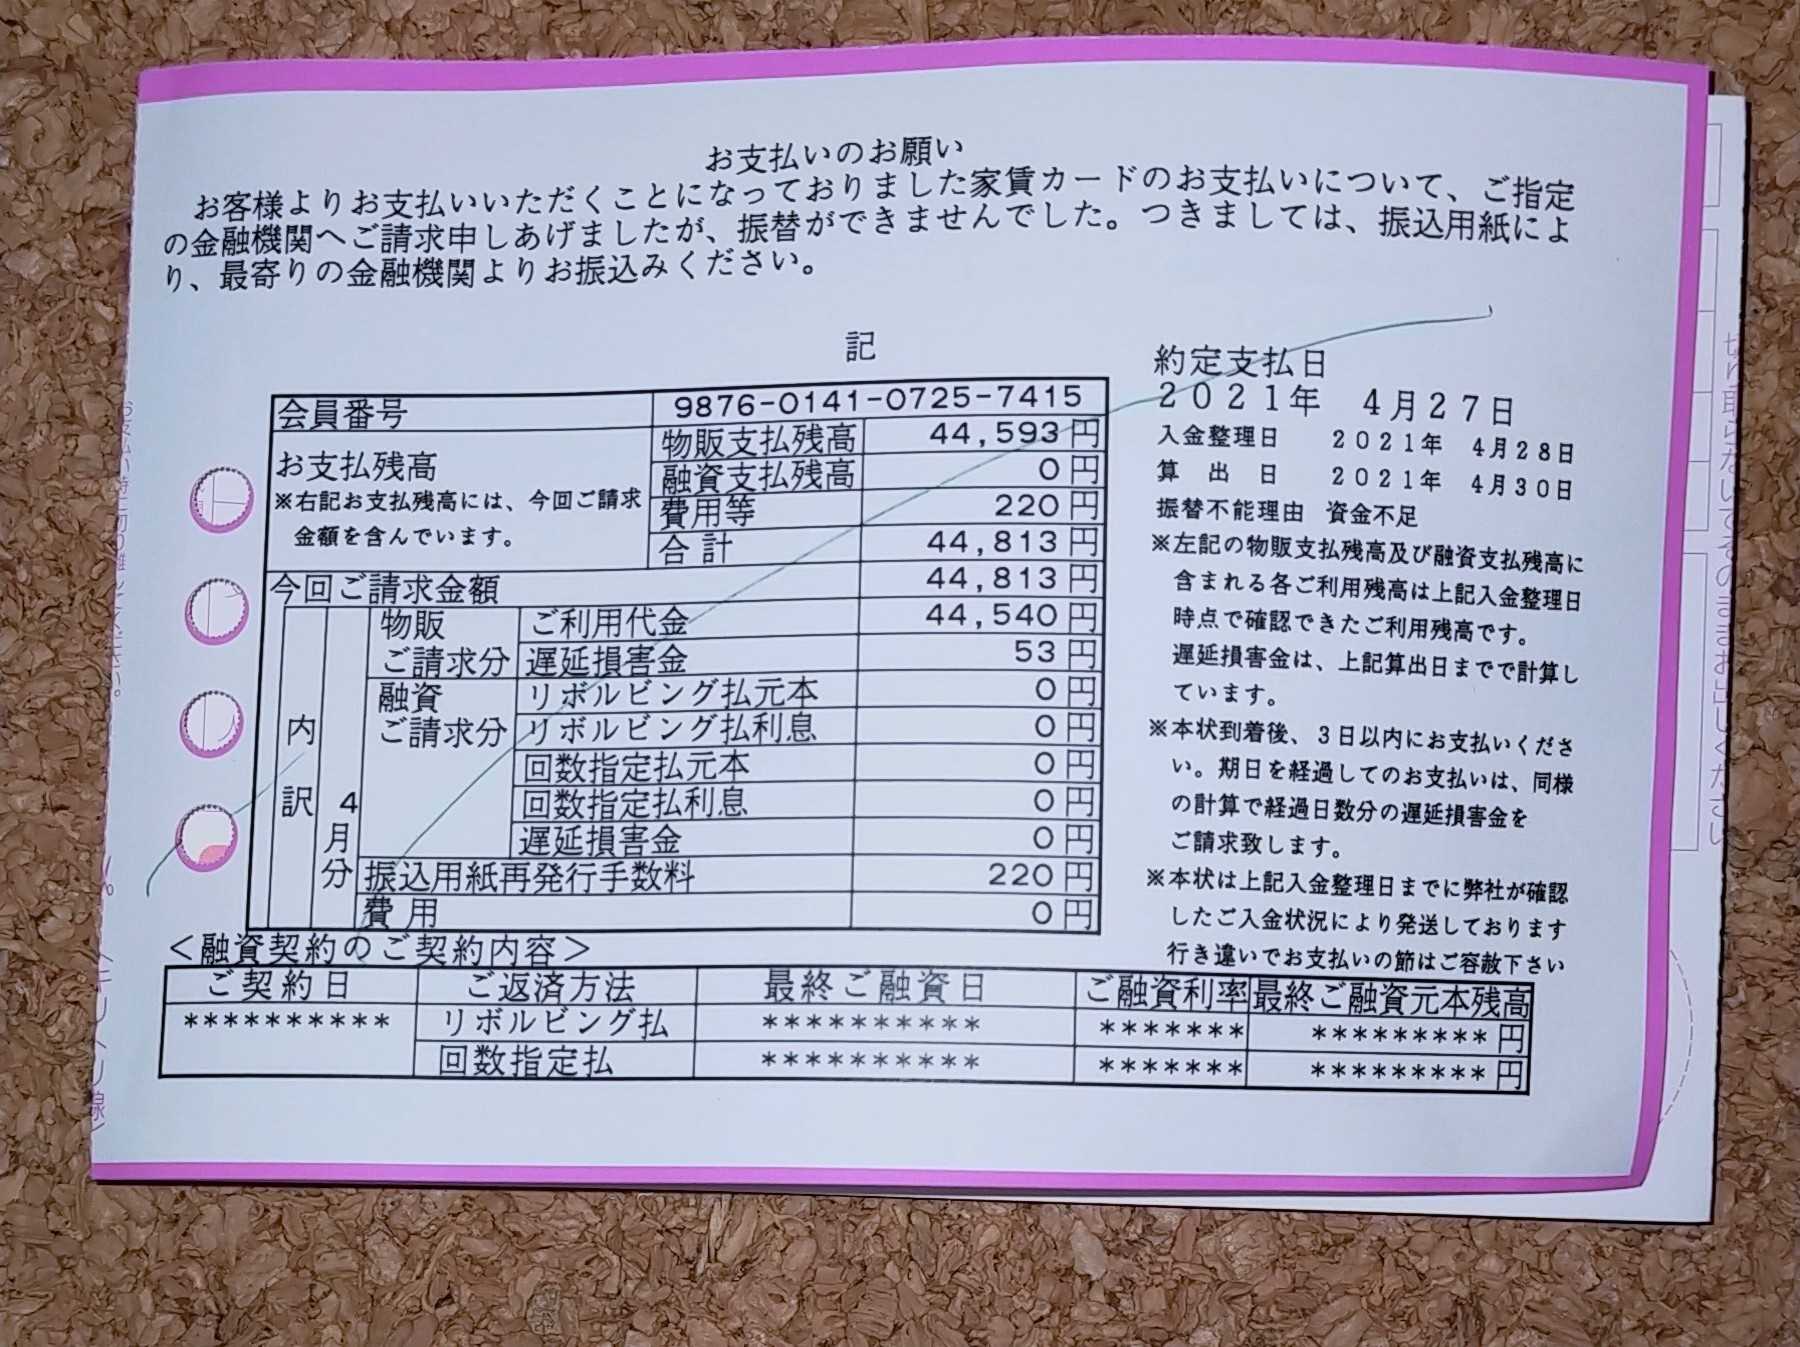 お支払いのお願い
お客様よりお支払いいただくことになっておりました家賃カードのお支払いについて、ご指定
の金融機関へご請求申しあげましたが、振替ができませんでした。つきましては、振込用紙によ
り、最寄りの金融機関よりお振込みください。
記
会員番号 9876-0141-0725-7415
お支払残高
※右記お支払残高には、今回ご請求
金額を含んでいます。
物販支払残高 44,593円
融資支払残高 0円
費用等 220円
合計 44,813円
今回ご請求金額 44,813円
内訳
4月分
物販
ご請求分
ご利用代金 44,540円
遅延損害金 53円
融資
ご請求分
リボルビング払元本 0円
リボルビング払利息 0円
回数指定払元本 0円
回数指定払利息 0円
遅延損害金 0円
振込用紙再発行手数料 220円
費用 0円
約定支払日
2021年 4月27日
入金整理日 2021年 4月28日
算出日 2021年 4月30日
振替不能理由 資金不足
※左記の物販支払残高及び融資支払残高に
含まれる各ご利用残高は上記入金整理日
時点で確認できたご利用残高です。
遅延損害金は、上記算出日までで計算し
ています。
※本状到着後、3日以内にお支払いくださ
い。期日を経過してのお支払いは、同様
の計算で経過日数分の遅延損害金を
ご請求致します。
※本状は上記入金整理日までに弊社が確認
したご入金状況により発送しております
行き違いでお支払いの節はご容赦下さい
<融資契約のご契約内容>
ご契約日 ご返済方法 最終ご融資日 ご融資利率 最終ご融資元本残高
********** リボルビング払 ********** ******* *********円
回数指定払 ********** ******* *********円
切り取らないでそのままお出しください